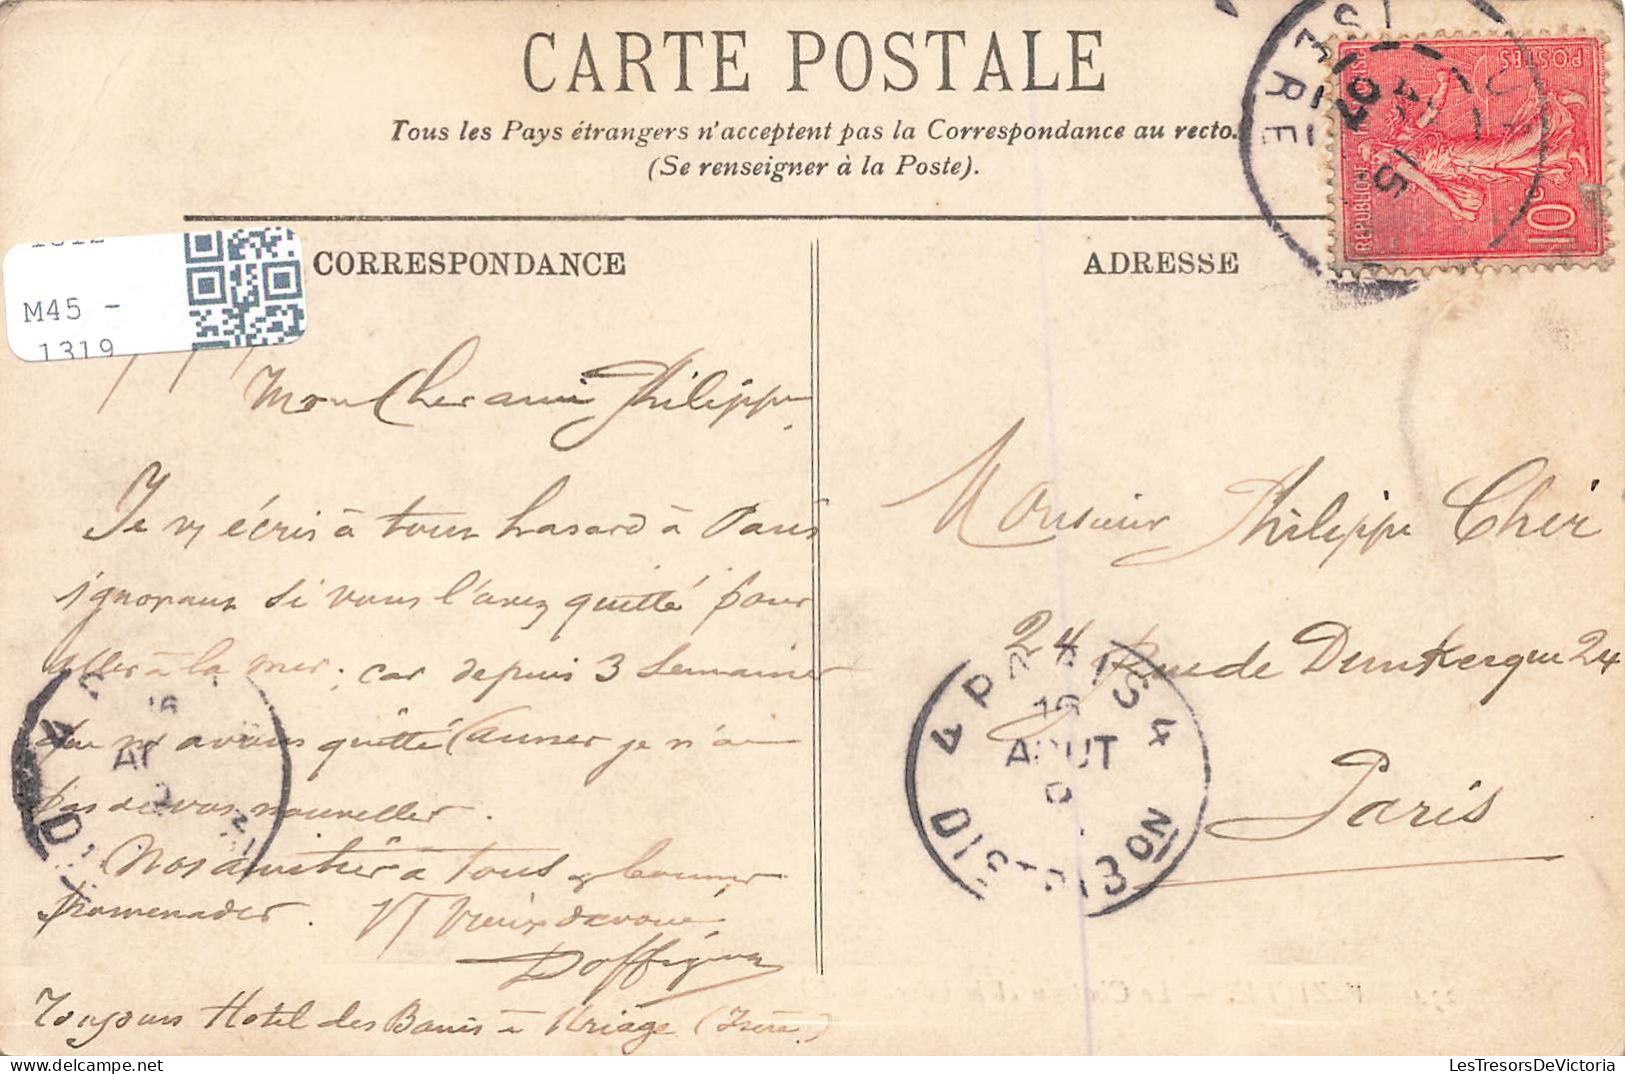 CARTE POSTALE
Tous les Pays étrangers n'acceptent pas la Correspondance au recto.
(Se renseigner à la Poste).
CORRESPONDANCE
ADRESSE
M45 -
1319
REPUBLIQUE FRANÇAISE
POSTES
10 c
ISERE
15
07
Mon Cher ami Philippe
Je v/ écris à tout hasard à Paris
ignorant si vous l'avez quitté pour
aller à la mer, car depuis 3 semaines
que ns avons quitté je n'ai
pas de vos nouvelles.
Nos amitiés à tous & bonnes
promenades. Vt Vieux dévoué,
Toujours Hotel des Bains à Uriage (Isère)
Monsieur Philippe Chér
24 Rue de Dunkerque 24
Paris
PARIS 4
16
AOUT
DISTRIBON
16
LesTresorsDeVictoria.com